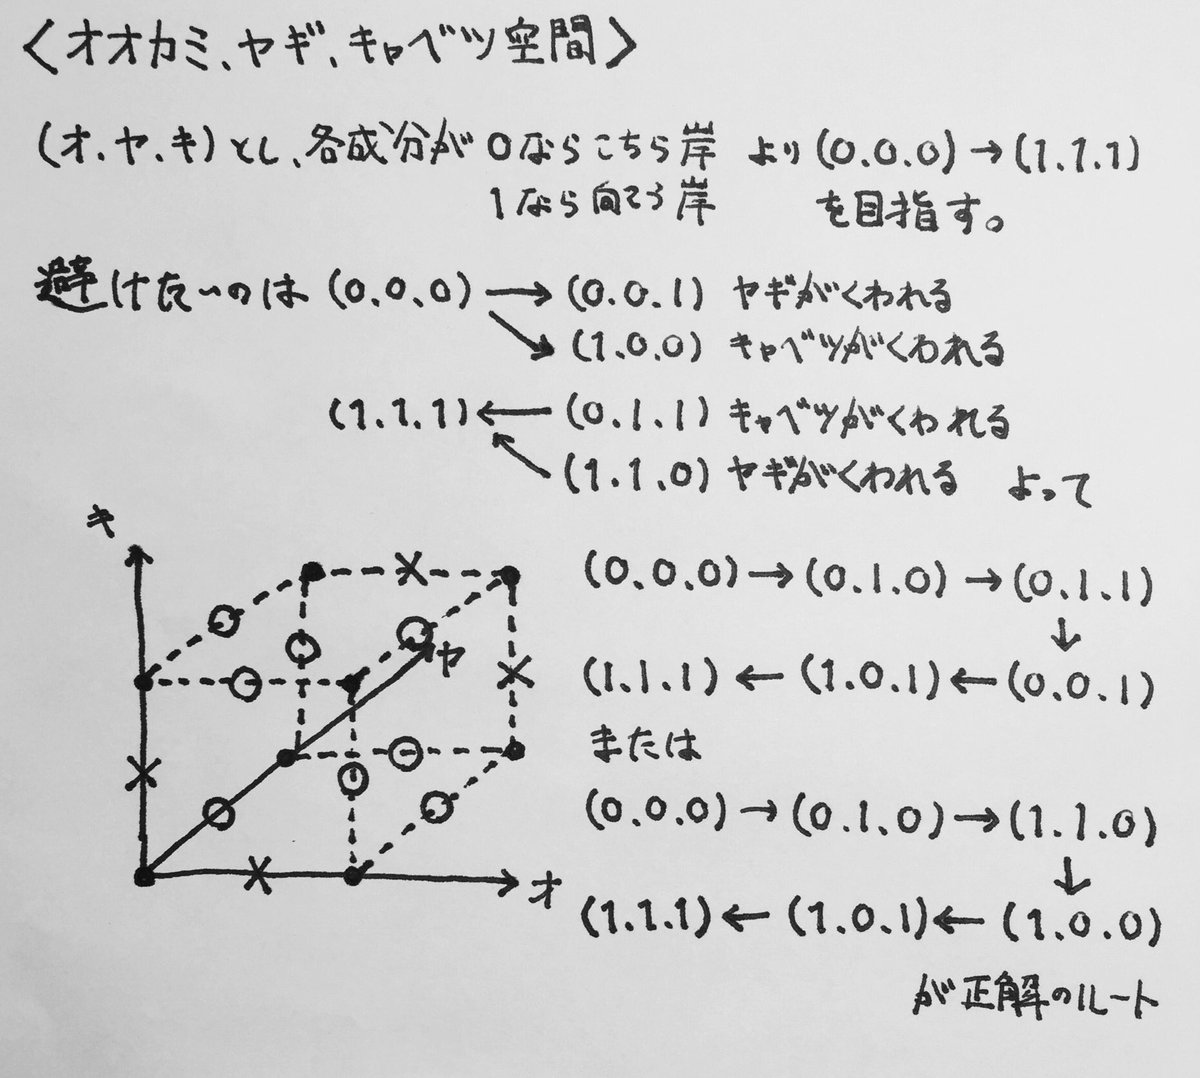 <オオカミ、ヤギ、キャベツ空間>
(オ.ヤ.キ)とし、各成分が0ならこちら岸 より(0.0.0)→(1.1.1)
1なら向こう岸 を目指す。
避けたいのは(0.0.0)→(0.0.1)ヤギがくわれる
(1.0.0)キャベツがくわれる
(1.1.1)←(0.1.1)キャベツがくわれる
(1.1.0)ヤギがくわれる よって
キ
ヤ
オ
(0.0.0)→(0.1.0)→(0.1.1)
↓
(1.1.1)←(1.0.1)←(0.0.1)
または
(0.0.0)→(0.1.0)→(1.1.0)
↓
(1.1.1)←(1.0.1)←(1.0.0)
が正解のルート